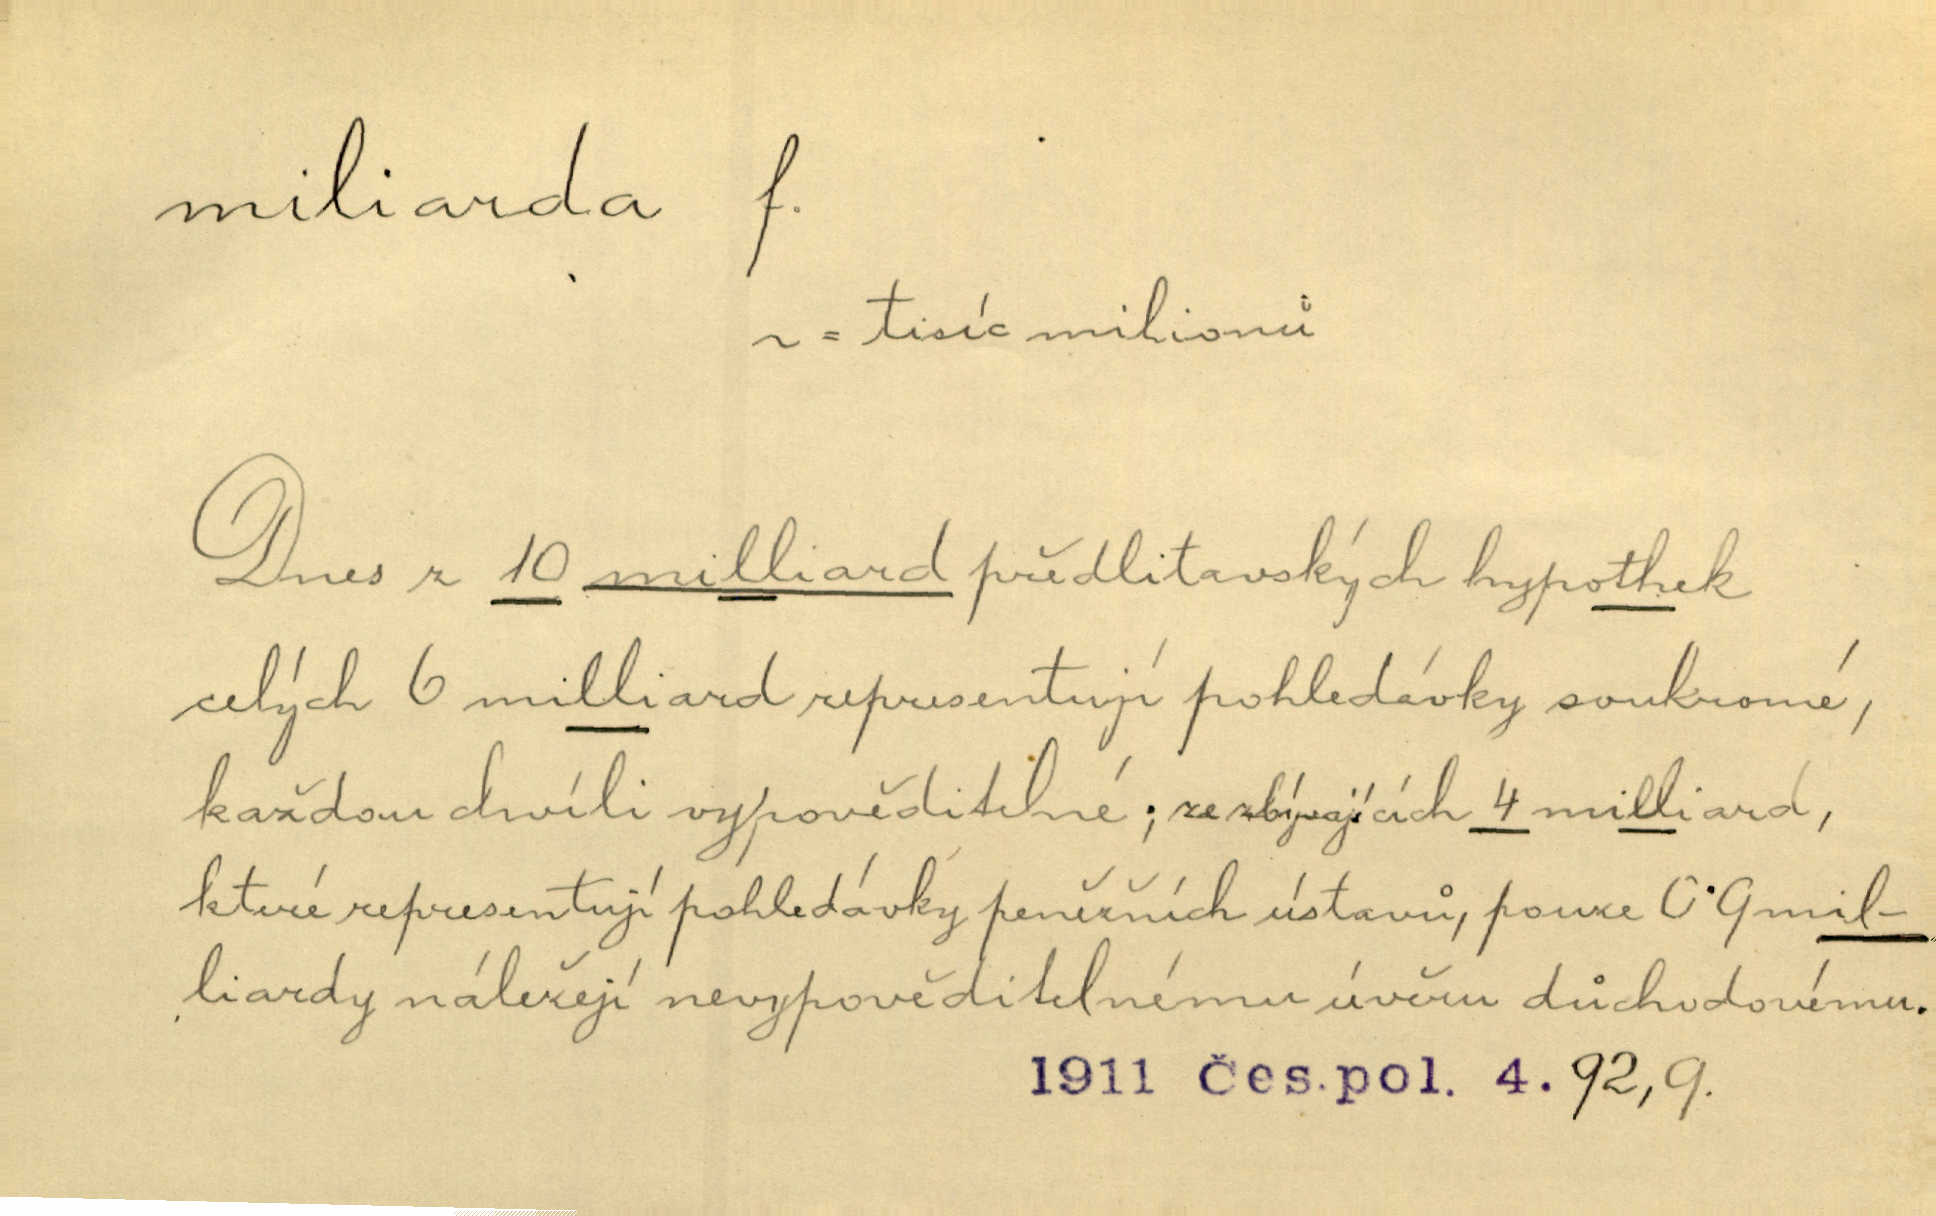 miliarda f.
~ = tisíc milionů
Dnes z 10 milliard předlitavských hypothek
celých 6 milliard representují pohledávky soukromé,
každou chvíli vypověditelné; ze zbývajících 4 milliard,
které representují pohledávky peněžních ústavů, pouze 0·9 mil-
liardy náležejí nevypověditelnému úvěru důchodovému.
1911 Čes. pol. 4. 92, 9.